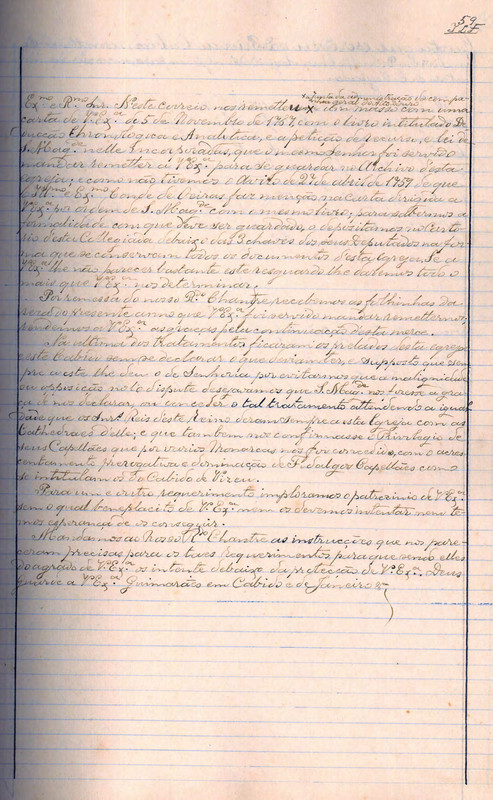 59
Exmo. e Rmo. Snr. Neste correio nos remetteu x um masso com uma
carta de V.ª Ex.ª de 5 de Novembro de 1767, com o livro intitulado De
ducção Chronologica e Analitica, e a petição de recurso, e lei de
S. Mag.de nelle Incorporadas, que o mesmo Senhor foi servido
mandar remetter a V.ª Ex.ª para se guardar no Archivo desta
Igreja; e como não tivemos o Aviso de 24 de abril de 1759 de que
o Ill.mo e Ex.mo Conde de Oeiras faz menção na Carta dirigida a
V.ª Ex.ª por ordem de S. Mag.de com o mesmo livro, para sabermos a
formalidade com que deve ser guardado, o depositamos no Carto
rio desta Collegiada debaixo das 3 chaves dos seus Deputados na for
ma que se conservam todos os documentos desta Igreja. Se a
V.ª Ex.ª lhe não parecer bastante este resguardo lhe daremos todo o
mais que V.ª Ex.ª nos determinar.
Por remessa do nosso R.do Chantre recebemos as folhinhas da
reza do presente anno que V.ª Ex.ª foi servido mandar remetter-nos,
rendemos a V.ª Ex.ª as graças pela continuação desta merce.
Na ultima dos tratamentos ficaram os prelados desta Igreja
e este Cabido sem se declarar o que devia ter, e supposto que sem
pre a este lhe deu o de Senhoria por evitarmos que a malignidade
ou opposição nol-o dispute desejavamos que S. Mag.de nos fizesse a gra
ça de nos declarar, ou conceder o tal tratamento attendendo a igual
dade que os Snr.s Reis deste Reino deram sempre a esta Igreja com as
Cathedraes delle; e que tambem nos confirmasse o Privilegio de
seus Capellães que por varios Monarcas nos foi concedido, com o acres
centamento prerogativa e denominação de Fidalgos Capellães como
se intitulam os do Cabido de Vizeu.
Para um e outro requerimento imploramos o patrocinio de V.ª Ex.ª
sem o qual beneplacito de V.ª Ex.ª nem os devemos intentar nem te
mos esperança de os conseguir.
Mandamos ao Nosso R.do Chantre as instrucções que nos pare
ceram precisas para os taes Requerimentos para que sendo elles
do agrado de V.ª Ex.ª os intente debaixo da protecção de V.ª Ex.ª. Deus
guarde a V.ª Ex.ª Guimarães em Cabido de Janeiro